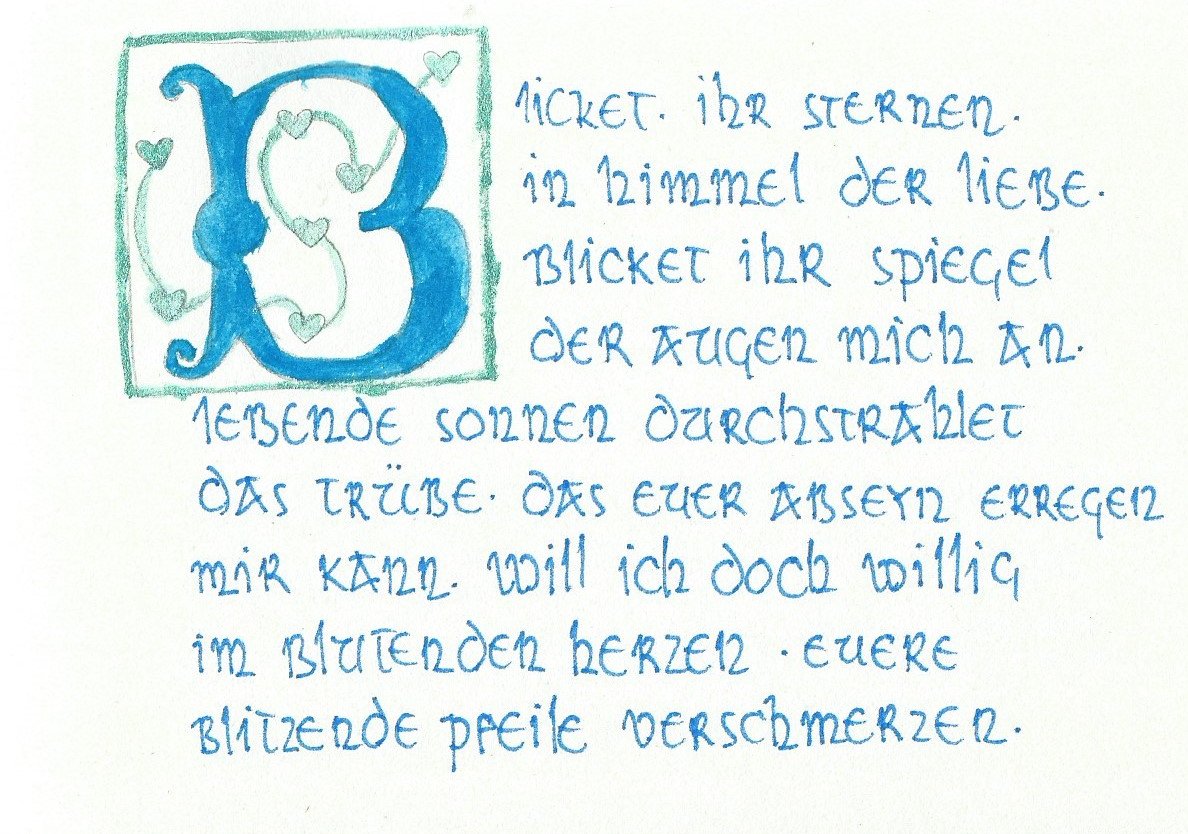 Blicket. ihr sternen.
in himmel der liebe.
Blicket ihr spiegel
der augen mich an.
lebende sonnen durchstrahlet
das trübe. das euer abseyn erregen
mir kann. will ich doch willig
im blutenden herzen. euere
blitzende pfeile verschmerzen.